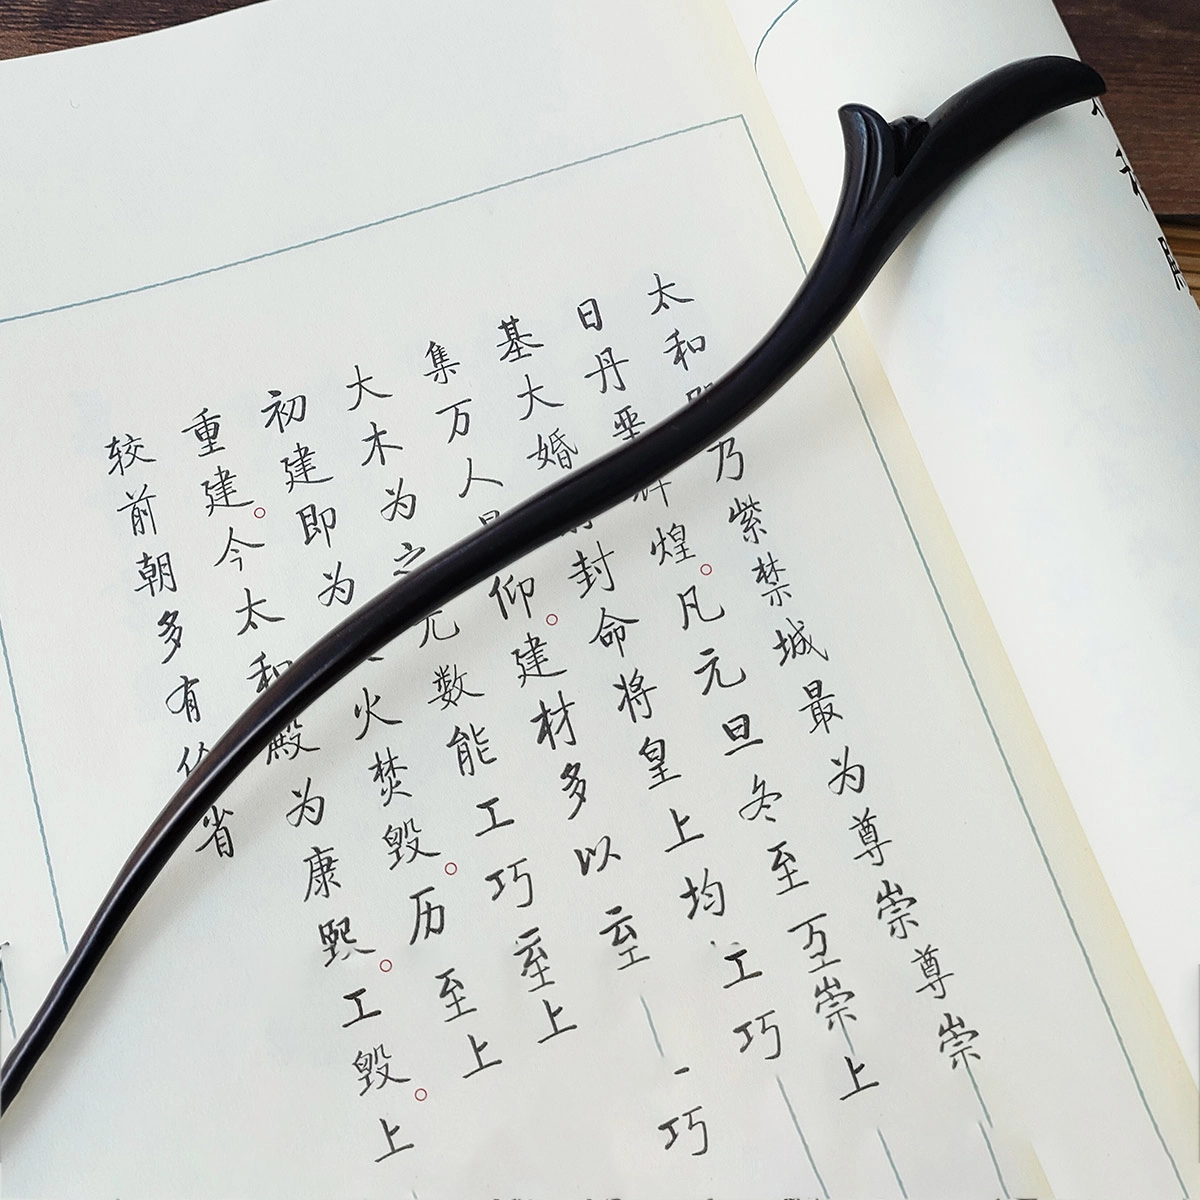 太和殿乃紫禁城最为尊崇尊崇
日丹垩辉煌。凡元旦冬至崇上
基大婚封命将皇上均工巧
集万人仰。建材多以巧
大木为之元数能工巧至上
初建即为火焚毁。历至上
重建。今太和殿为康熙。工毁。上
较前朝多有省